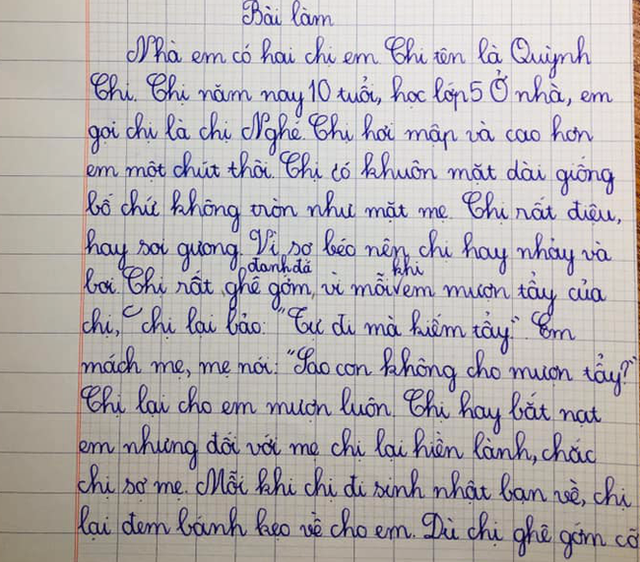 Bài làm
Nhà em có hai chị em. Chị tên là Quỳnh
Chi. Chị năm nay 10 tuổi, học lớp 5 Ở nhà, em
gọi chị là chị Nghé. Chị hơi mập và cao hơn
em một chút thôi. Chị có khuôn mặt dài giống
bố chứ không tròn như mặt mẹ. Chị rất điệu,
hay soi gương. Vì sợ béo nên chị hay nhảy và
đanh đá khi
bơi. Chị rất ghê gớm, vì mỗi em mượn tẩy của
chị, chị lại bảo: "Tự đi mà kiếm tẩy". Em
mách mẹ, mẹ nói: "Sao con không cho mượn tẩy?"
Chị lại cho em mượn luôn. Chị hay bắt nạt
em nhưng đối với mẹ chị lại hiền lành, chắc
chị sợ mẹ. Mỗi khi chị đi sinh nhật bạn về, chị
lại đem bánh kẹo về cho em. Dù chị ghê gớm cỡ